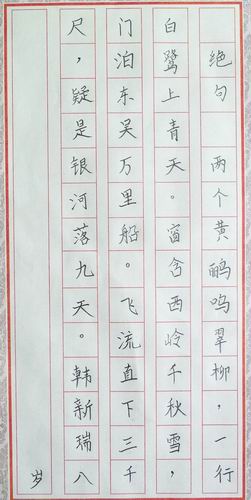 绝句 两个黄鹂鸣翠柳，一行
白鹭上青天。窗含西岭千秋雪，
门泊东吴万里船。飞流直下三千
尺，疑是银河落九天。韩新瑞八
岁